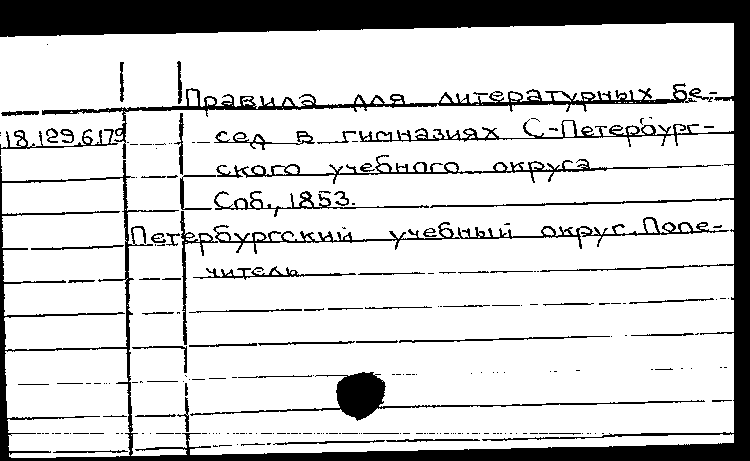 Правила для литературных бе-
18.129.6.179 сед в гимназиях С-Петербург-
ского учебного округа
Спб., 1853.
Петербургский учебный округ. Попе-
читель